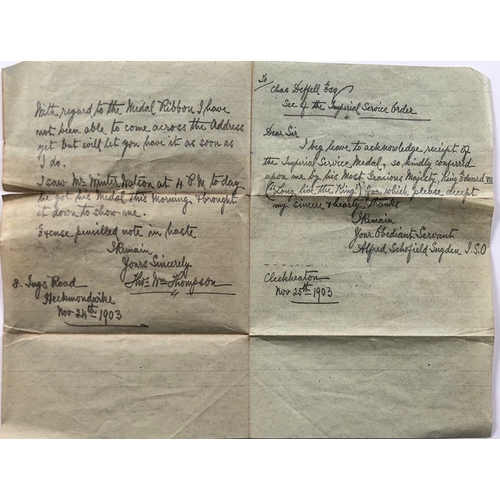 With regard to the Medal Ribbon I have
not been able to come across the Address
yet but will let you have it as soon as
I do.
I saw Mr Winter Watson at 4 P.M. to day
he got his Medal this Morning & brought
it down to show me.
Excuse pencilled note in haste
I Remain
Yours Sincerely
Thos Wm Thompson
8. Ings Road
Heckmondwike
Nov 24th 1903
To
Chas Deffell Esq
Sec of the Imperial Service Order
Dear Sir
I beg leave to acknowledge receipt of
the Imperial Service Medal, so kindly conferred
upon me by his Most Gracious Majesty, King Edward VII
("Long live the King") for which, please, accept
my sincere & hearty thanks
I Remain
Your Obediant Servant
Alfred Schofield Sugden I.S.O
Cleckheaton
Nov 25th 1903